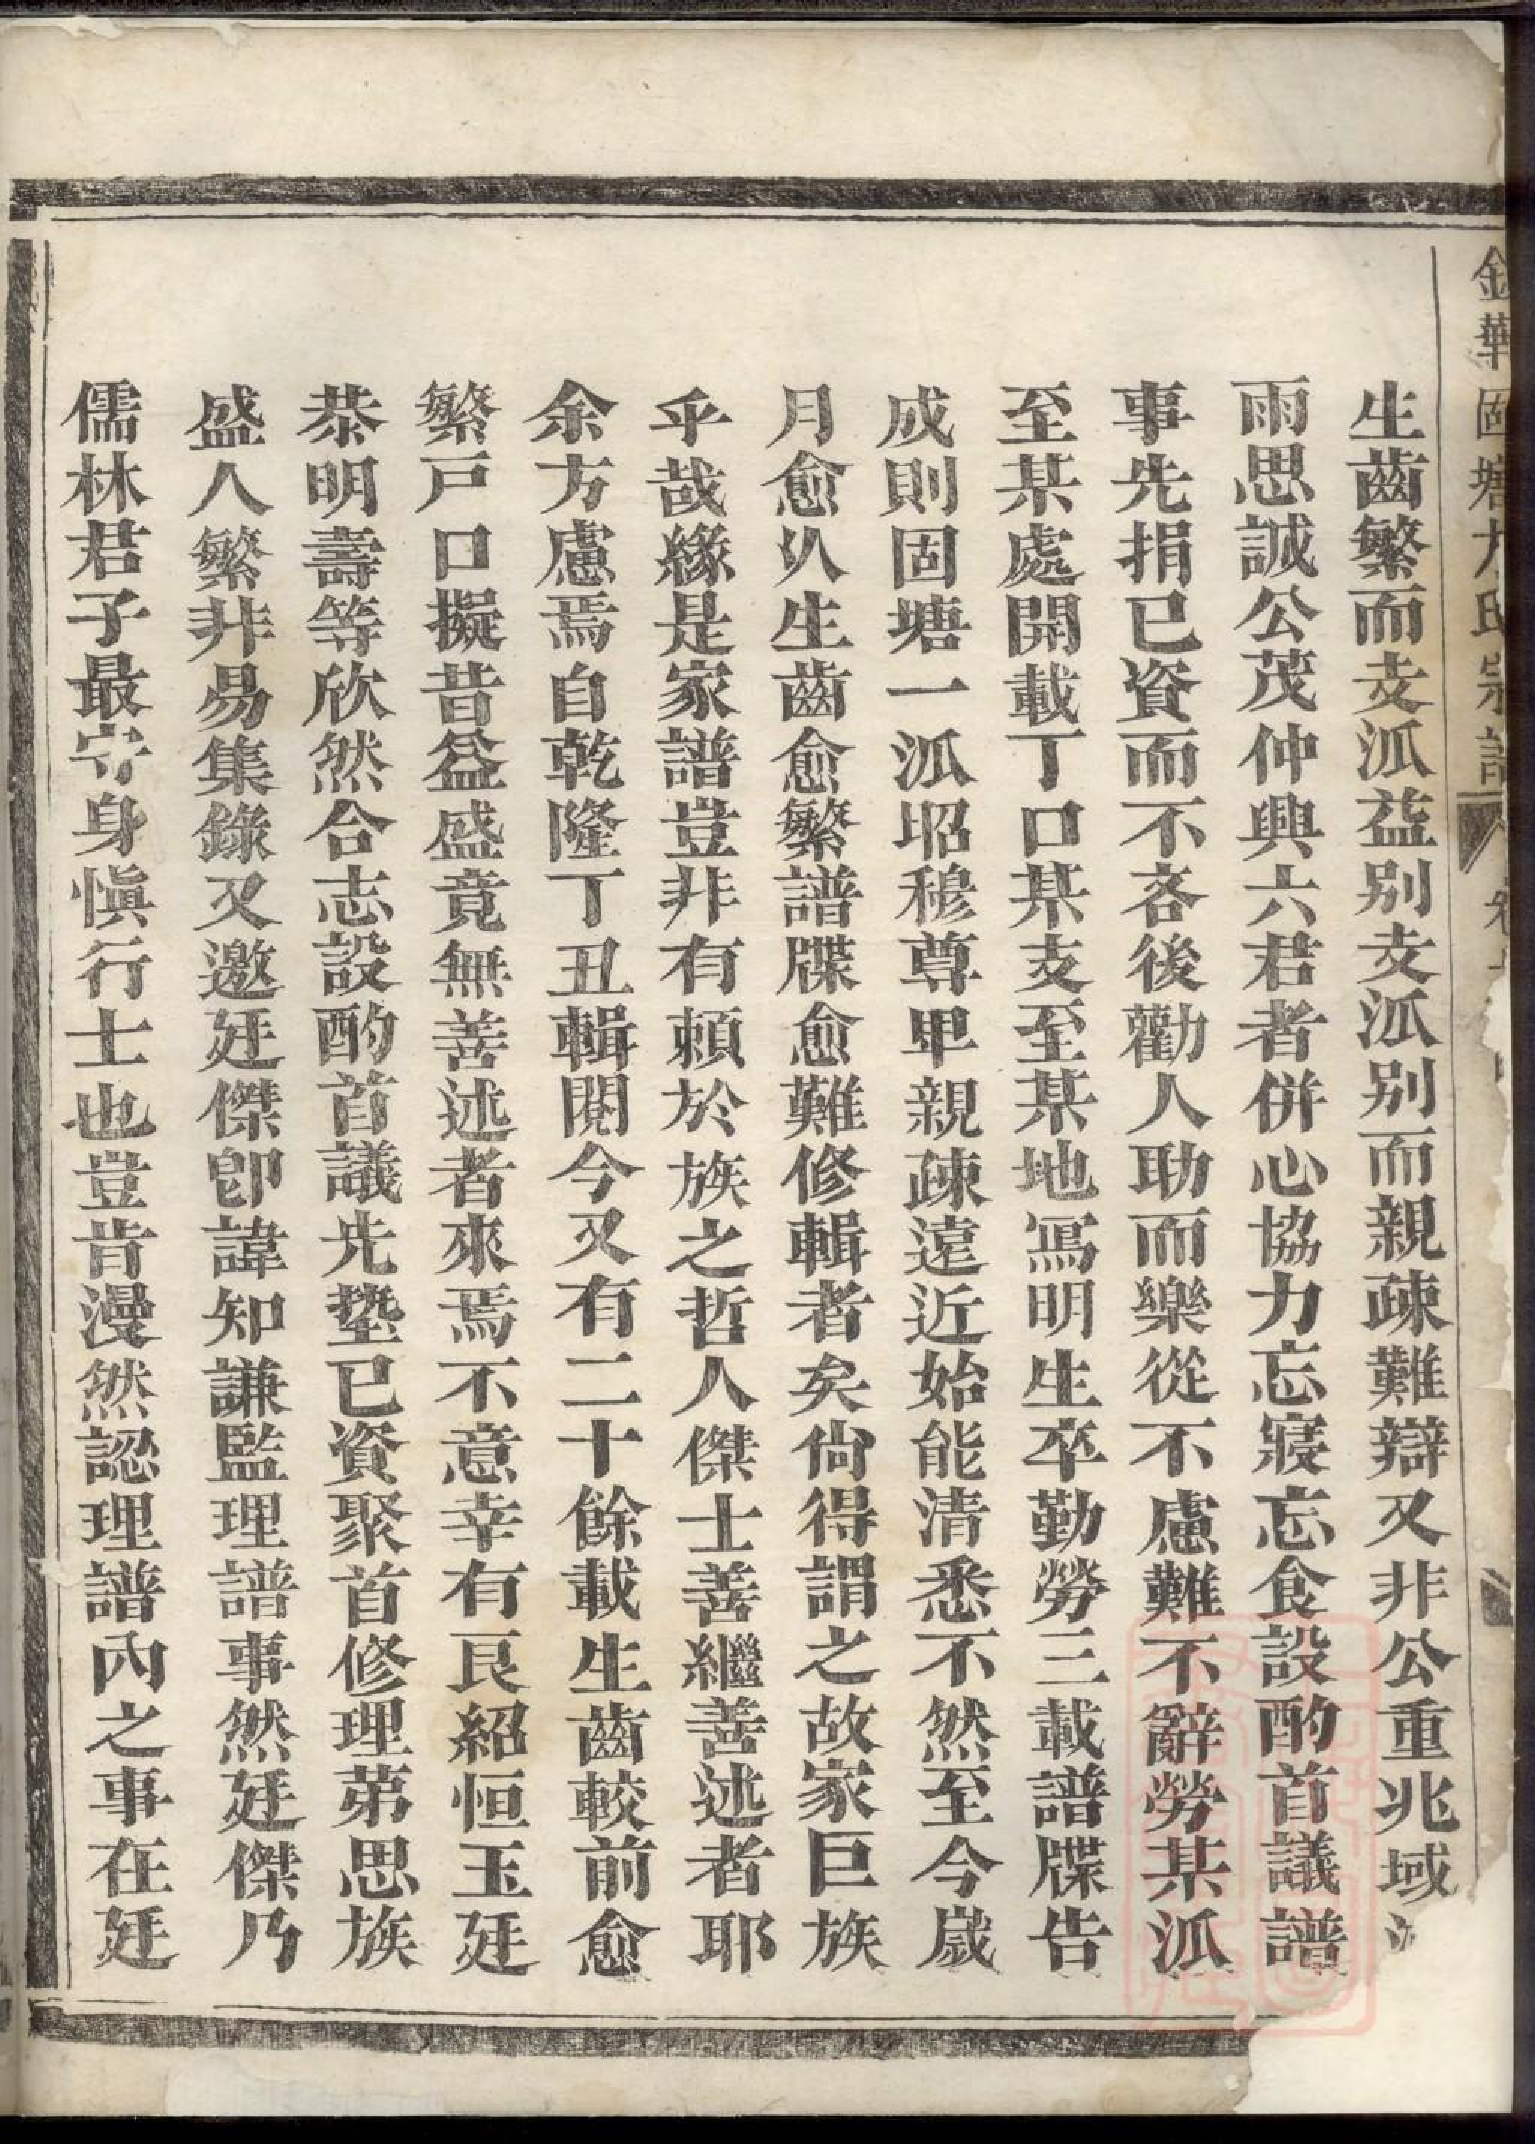 金華固塘方氏宗譜
生齒繁而支派益別支派別而親疎難辯又非公重兆域
雨思誠公茂仲興六君者併心協力忘寢忘食設酌首議譜
事先捐已資而不吝後勸人助而樂從不慮難不辭勞某派
至某處開載丁口某支至某地寫明生卒勤勞三載譜牒告
成則固塘一派昭穆尊卑親疎遠近始能清悉不然至今歲
月愈久生齒愈繁譜牒愈難修輯者矣尙得謂之故家巨族
乎哉緣是家譜豈非有頼於族之哲人傑士善繼善述者耶
余方慮焉自乾隆丁丑輯閱今又有二十餘載生齒較前愈
繁戸口擬昔益盛竟無善述者來焉不意幸有良紹恒玉廷
恭明壽等欣然合志設酌首議先墊已資聚首修理第思族
盛人繁非易集錄又邀廷傑卽諱知謙監理譜事然廷傑乃
儒林君子最守身愼行士也豈肯漫然認理譜內之事在廷